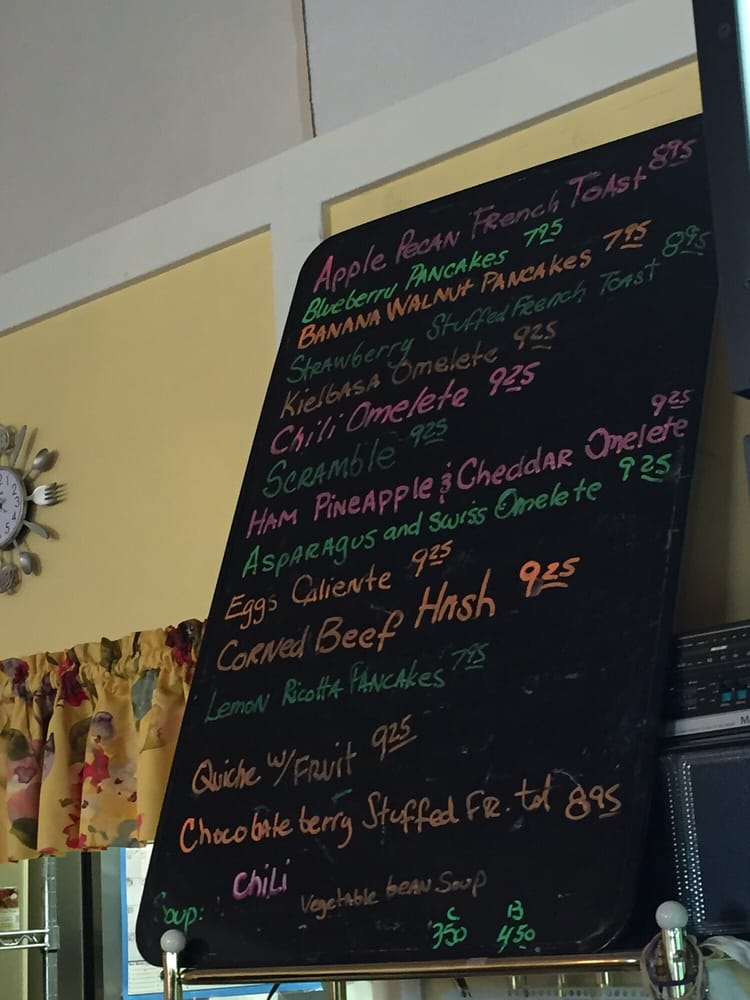 Apple Pecan French Toast 8.95
Blueberry Pancakes 7.95
Banana Walnut Pancakes 7.95
Strawberry Stuffed French Toast 8.95
Kielbasa Omelete 9.25
Chili Omelete 9.25
Scramble 9.25
Ham Pineapple & Cheddar Omelete 9.25
Asparagus and Swiss Omelete 9.25
Eggs Caliente 9.25
Corned Beef Hash 9.25
Lemon Ricotta Pancakes 7.95
Quiche w/ Fruit 9.25
Chocolate berry Stuffed Fr. tst 8.95
Chili
Soup: Vegetable bean Soup
C B
3.50 4.50